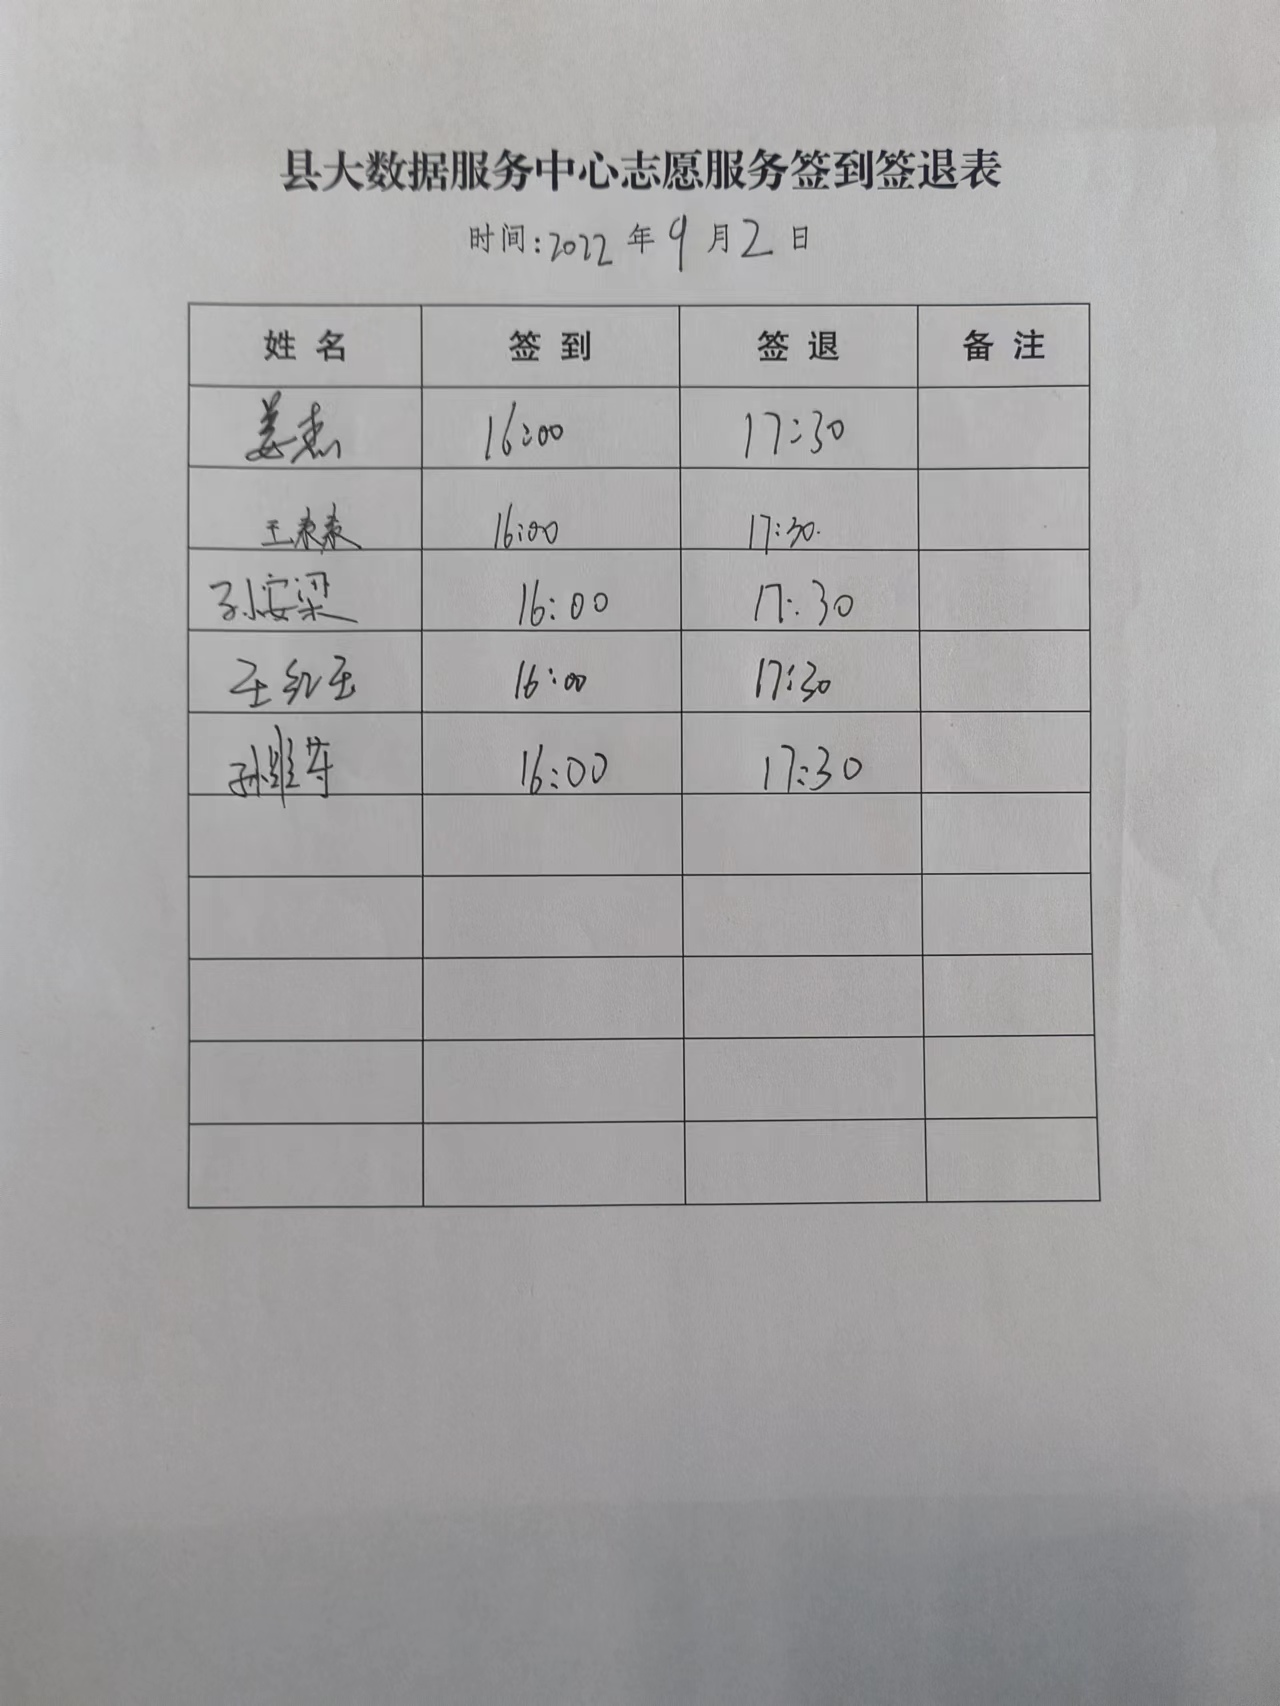 县大数据服务中心志愿服务签到签退表
时间:2022年9月2日
姓名 签到 签退 备注
姜杰 16:00 17:30
王 16:00 17:30.
孙安梁 16:00 17:30
王红玉 16:00 17:30
孙 16:00 17:30